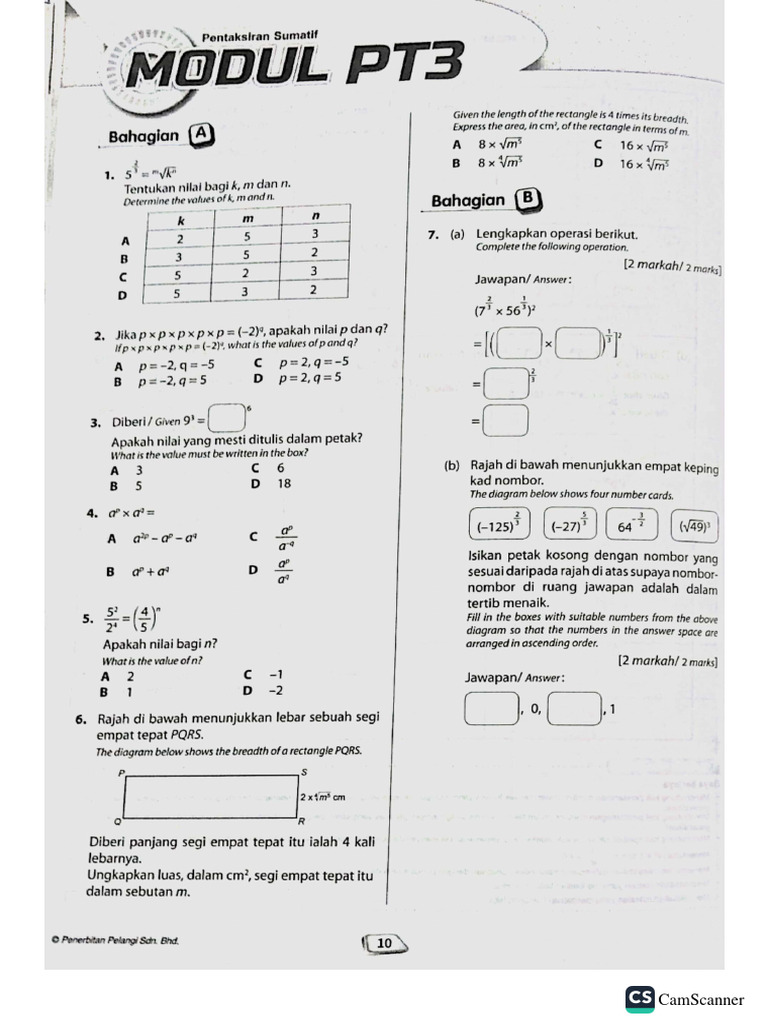 Pentaksiran Sumatif
MODUL PT3
Bahagian A
1. 5^(2/3) = ᵐ√kⁿ
Tentukan nilai bagi k, m dan n.
Determine the values of k, m and n.
k m n
A 2 5 3
B 3 5 2
C 5 2 3
D 5 3 2
2. Jika p × p × p × p × p = (–2)^q, apakah nilai p dan q?
If p × p × p × p × p = (–2)^q, what is the values of p and q?
A p = –2, q = –5 C p = 2, q = –5
B p = –2, q = 5 D p = 2, q = 5
3. Diberi / Given 9³ = ⁶
Apakah nilai yang mesti ditulis dalam petak?
What is the value must be written in the box?
A 3 C 6
B 5 D 18
4. a^p × a^q =
A a^(2p) – a^p – a^q C a^p / a^(–q)
B a^p + a^q D a^p / a^q
5. 5²/2⁴ = (4/5)ⁿ
Apakah nilai bagi n?
What is the value of n?
A 2 C –1
B 1 D –2
6. Rajah di bawah menunjukkan lebar sebuah segi
empat tepat PQRS.
The diagram below shows the breadth of a rectangle PQRS.
P S
2 × ⁴√m⁵ cm
Q R
Diberi panjang segi empat tepat itu ialah 4 kali
lebarnya.
Ungkapkan luas, dalam cm², segi empat tepat itu
dalam sebutan m.
Given the length of the rectangle is 4 times its breadth.
Express the area, in cm², of the rectangle in terms of m.
A 8 × √m⁵ C 16 × √m⁵
B 8 × ⁴√m⁵ D 16 × ⁴√m⁵
Bahagian B
7. (a) Lengkapkan operasi berikut.
Complete the following operation.
[2 markah/ 2 marks]
Jawapan/ Answer :
(7^(2/3) × 56^(1/3))²
= [( × )^(1/3)]²
= ^(2/3)
=
(b) Rajah di bawah menunjukkan empat keping
kad nombor.
The diagram below shows four number cards.
(–125)^(2/3) (–27)^(5/3) 64^(–3/2) (√49)³
Isikan petak kosong dengan nombor yang
sesuai daripada rajah di atas supaya nombor-
nombor di ruang jawapan adalah dalam
tertib menaik.
Fill in the boxes with suitable numbers from the above
diagram so that the numbers in the answer space are
arranged in ascending order.
[2 markah/ 2 marks]
Jawapan/ Answer :
, 0, , 1
© Penerbitan Pelangi Sdn. Bhd.
10
CS CamScanner